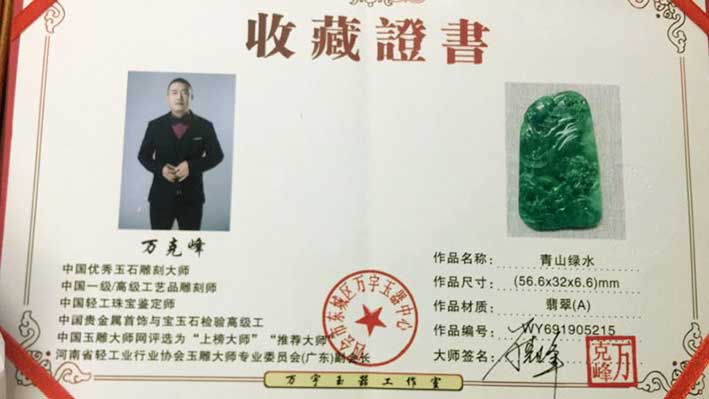 收藏證書
万克峰
中国优秀玉石雕刻大师
中国一级/高级工艺品雕刻师
中国轻工珠宝鉴定师
中国贵金属首饰与宝玉石检验高级工
中国玉雕大师网评选为“上榜大师” “推荐大师”
河南省轻工业行业协会玉雕大师专业委员会(广东)副会长
作品名称: 青山绿水
作品尺寸: (56.6x32x6.6)mm
作品材质: 翡翠(A)
作品编号: WY691905215
大师签名:
万克峰
市东城区万字玉器中心
万字玉器工作室